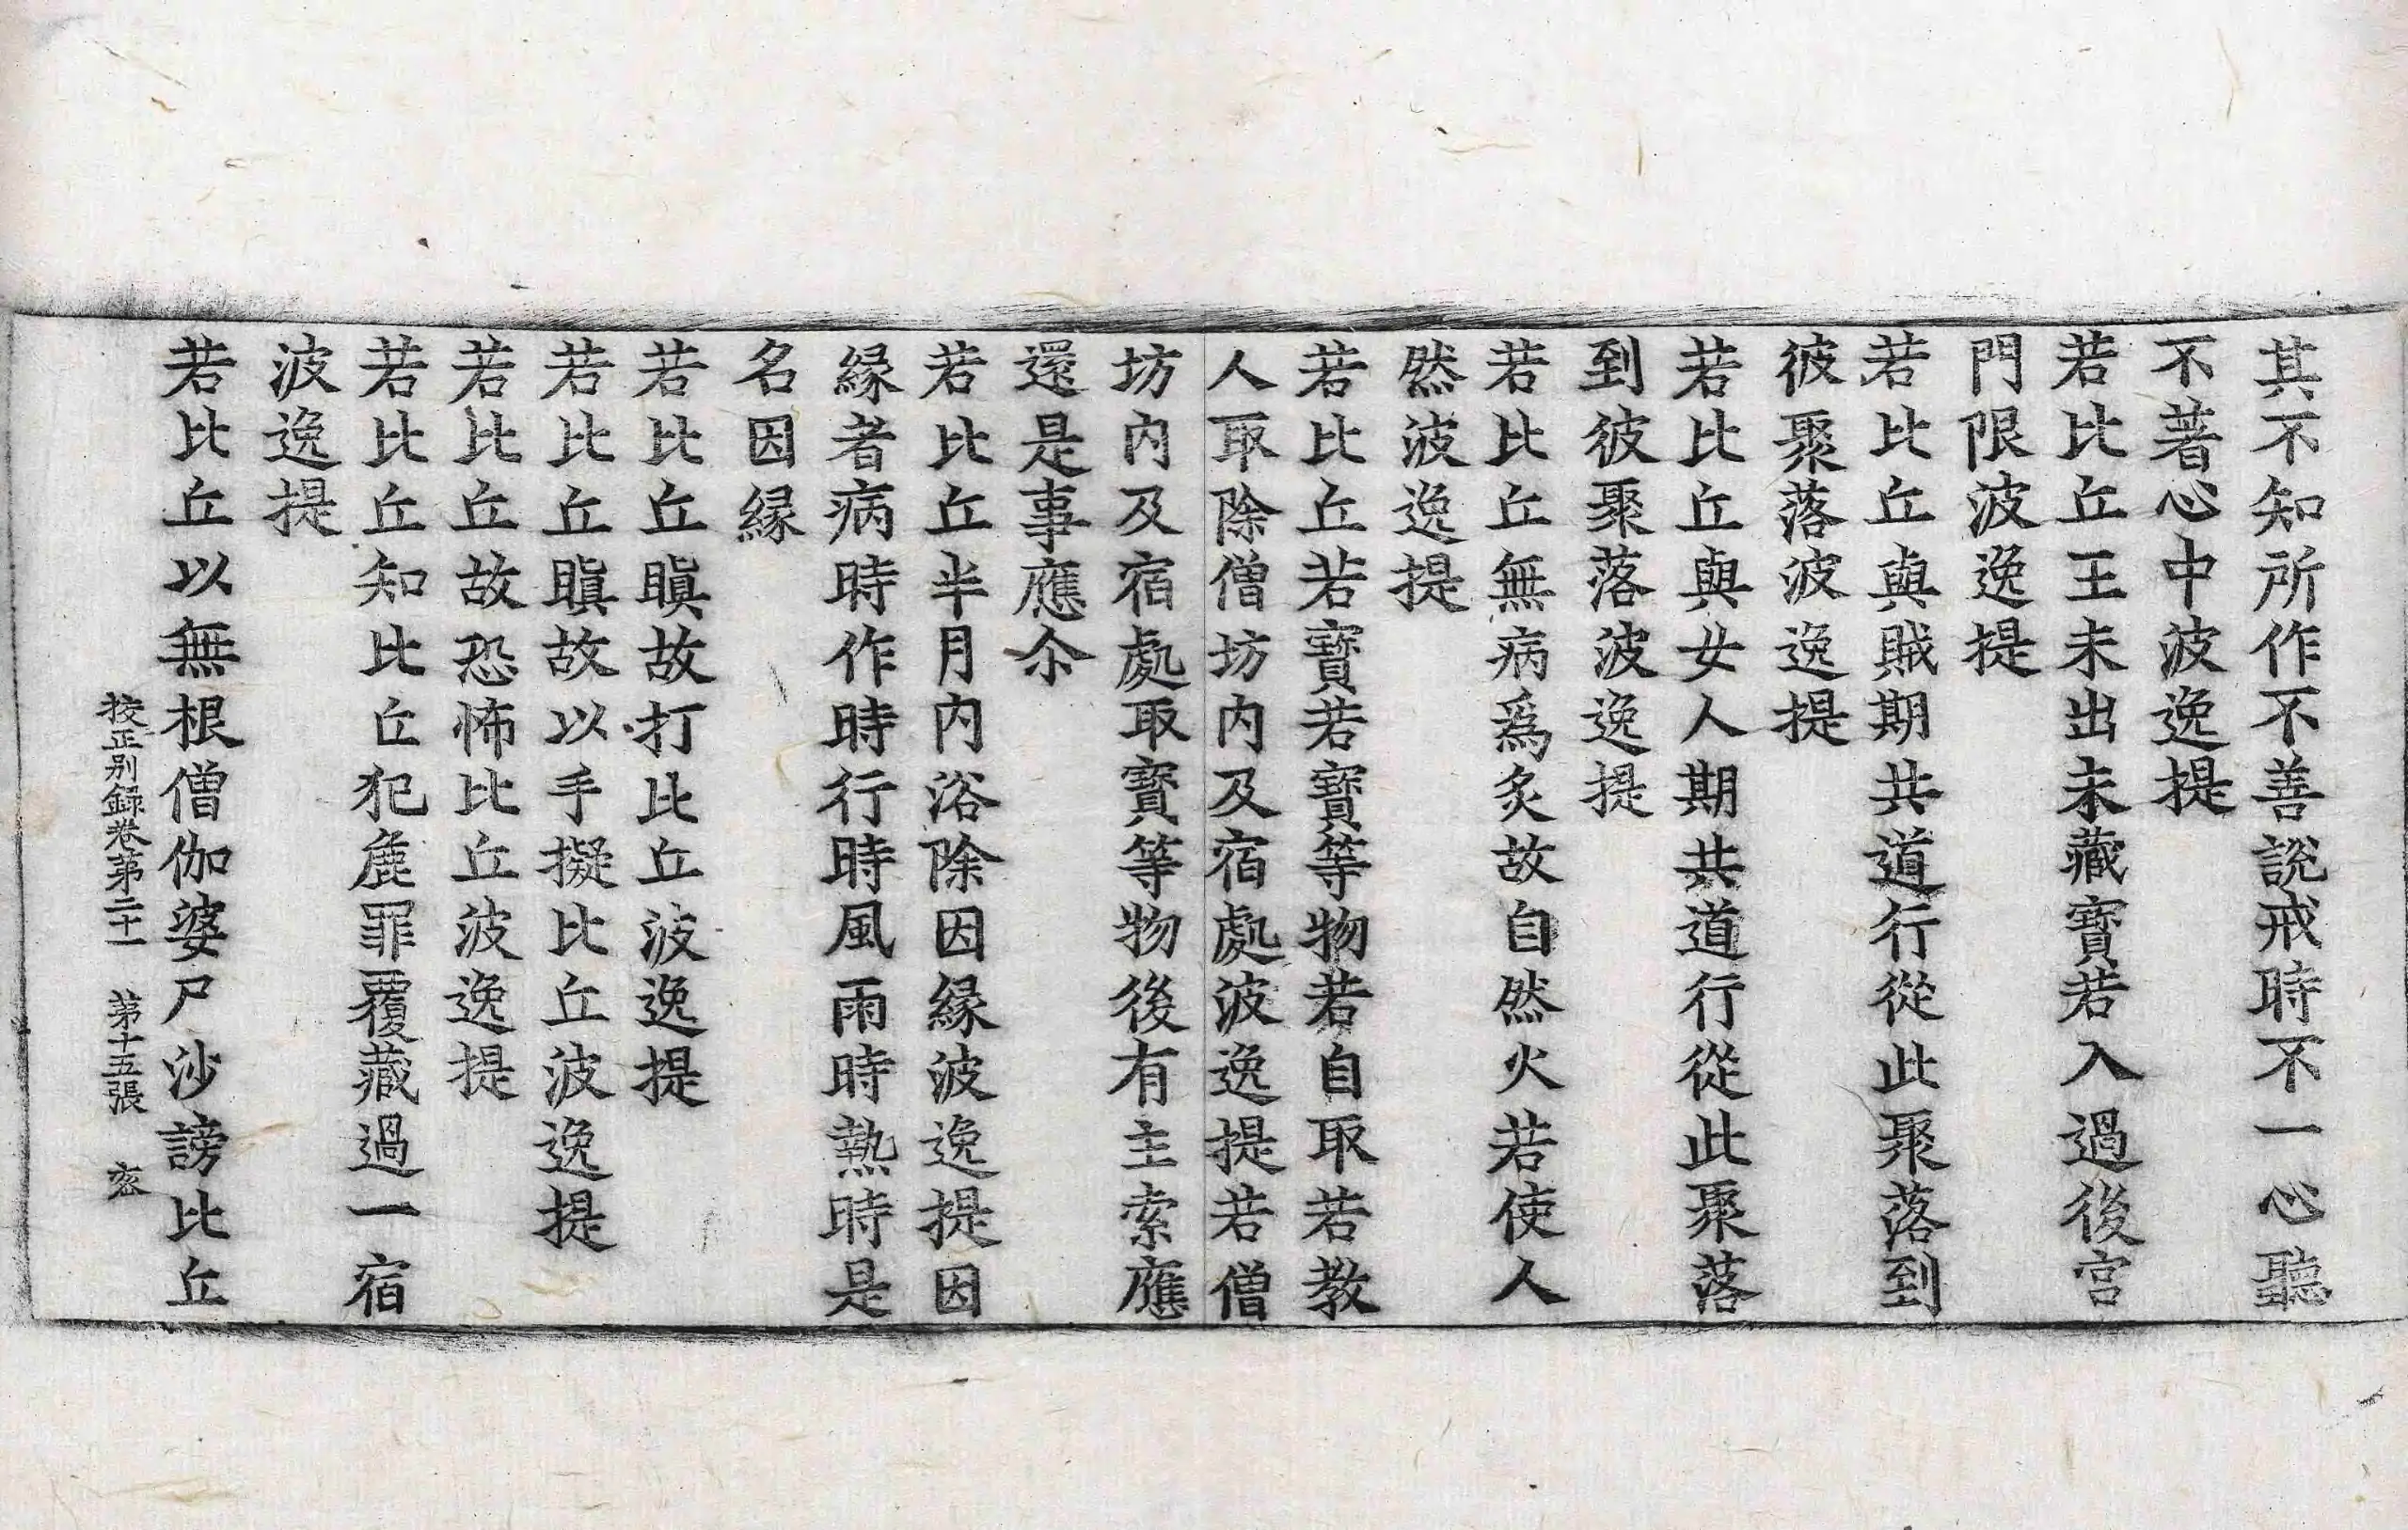 其不知所作不善說戒時不一心聽
不著心中波逸提
若比丘王未出未藏寶若入過後宮
門限波逸提
若比丘與賊期共道行從此聚落到
彼聚落波逸提
若比丘與女人期共道行從此聚落
到彼聚落波逸提
若比丘無病爲炙故自然火若使人
然波逸提
若比丘若寶若寶等物若自取若教
人取除僧坊內及宿處波逸提若僧
坊內及宿處取寶等物後有主索應
還是事應尒
若比丘半月內浴除因緣波逸提因
緣者病時作時行時風雨時熱時是
名因緣
若比丘瞋故打比丘波逸提
若比丘瞋故以手擬比丘波逸提
若比丘故恐怖比丘波逸提
若比丘知比丘犯麁罪覆藏過一宿
波逸提
若比丘以無根僧伽婆尸沙謗比丘
挍正別録卷第二十一 第十五張